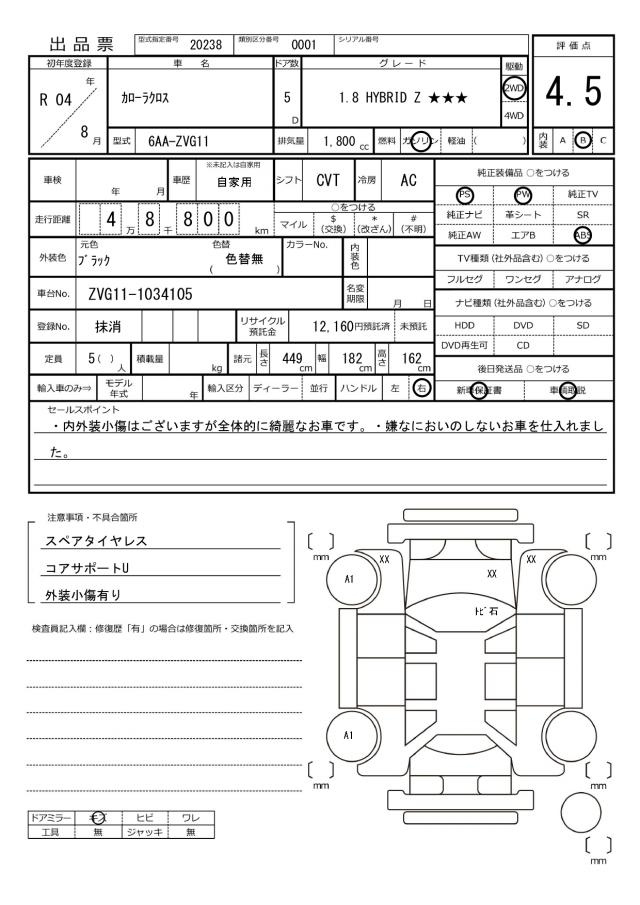 出品票 型式指定番号 20238 類別区分番号 0001 シリアル番号
評価点
4.5
内装 A B C
初年度登録 車名 ドア数 グレード 駆動
R 04 年 8 月 カローラクロス 5 D 1.8 HYBRID Z ★★★ 2WD 4WD
型式 6AA-ZVG11 排気量 1,800 cc 燃料 ガソリン 軽油 ( )
車検 年 月 車歴 ※未記入は自家用 自家用 シフト CVT 冷房 AC
走行距離 4 万 8 千 8 0 0 km ○をつける
マイル $ (交換) * (改ざん) # (不明)
外装色 元色 ブラック 色替 ( 色替無 ) カラーNo. 内装色
車台No. ZVG11-1034105 名変期限 月 日
登録No. 抹消 リサイクル預託金 12,160円預託済 未預託
定員 5( ) 人 積載量 kg 諸元 長さ 449 cm 幅 182 cm 高さ 162 cm
輸入車のみ⇒ モデル年式 年 輸入区分 ディーラー 並行 ハンドル 左 右
純正装備品 ○をつける
PS PW 純正TV
純正ナビ 革シート SR
純正AW エアB ABS
TV種類 (社外品含む) ○をつける
フルセグ ワンセグ アナログ
ナビ種類 (社外品含む) ○をつける
HDD DVD SD
DVD再生可 CD
後日発送品 ○をつける
新車保証書 車輌取説
セールスポイント
・内外装小傷はございますが全体的に綺麗なお車です。・嫌なにおいのしないお車を仕入れまし
た。
注意事項・不具合箇所
スペアタイヤレス
コアサポートU
外装小傷有り
検査員記入欄：修復歴「有」の場合は修復箇所・交換箇所を記入
ドアミラー キズ ヒビ ワレ
工具 無 ジャッキ 無
〔 〕 mm 〔 〕 mm
XX XX
A1 XX
トビ石
A1
〔 〕 mm 〔 〕 mm
〔 〕 mm